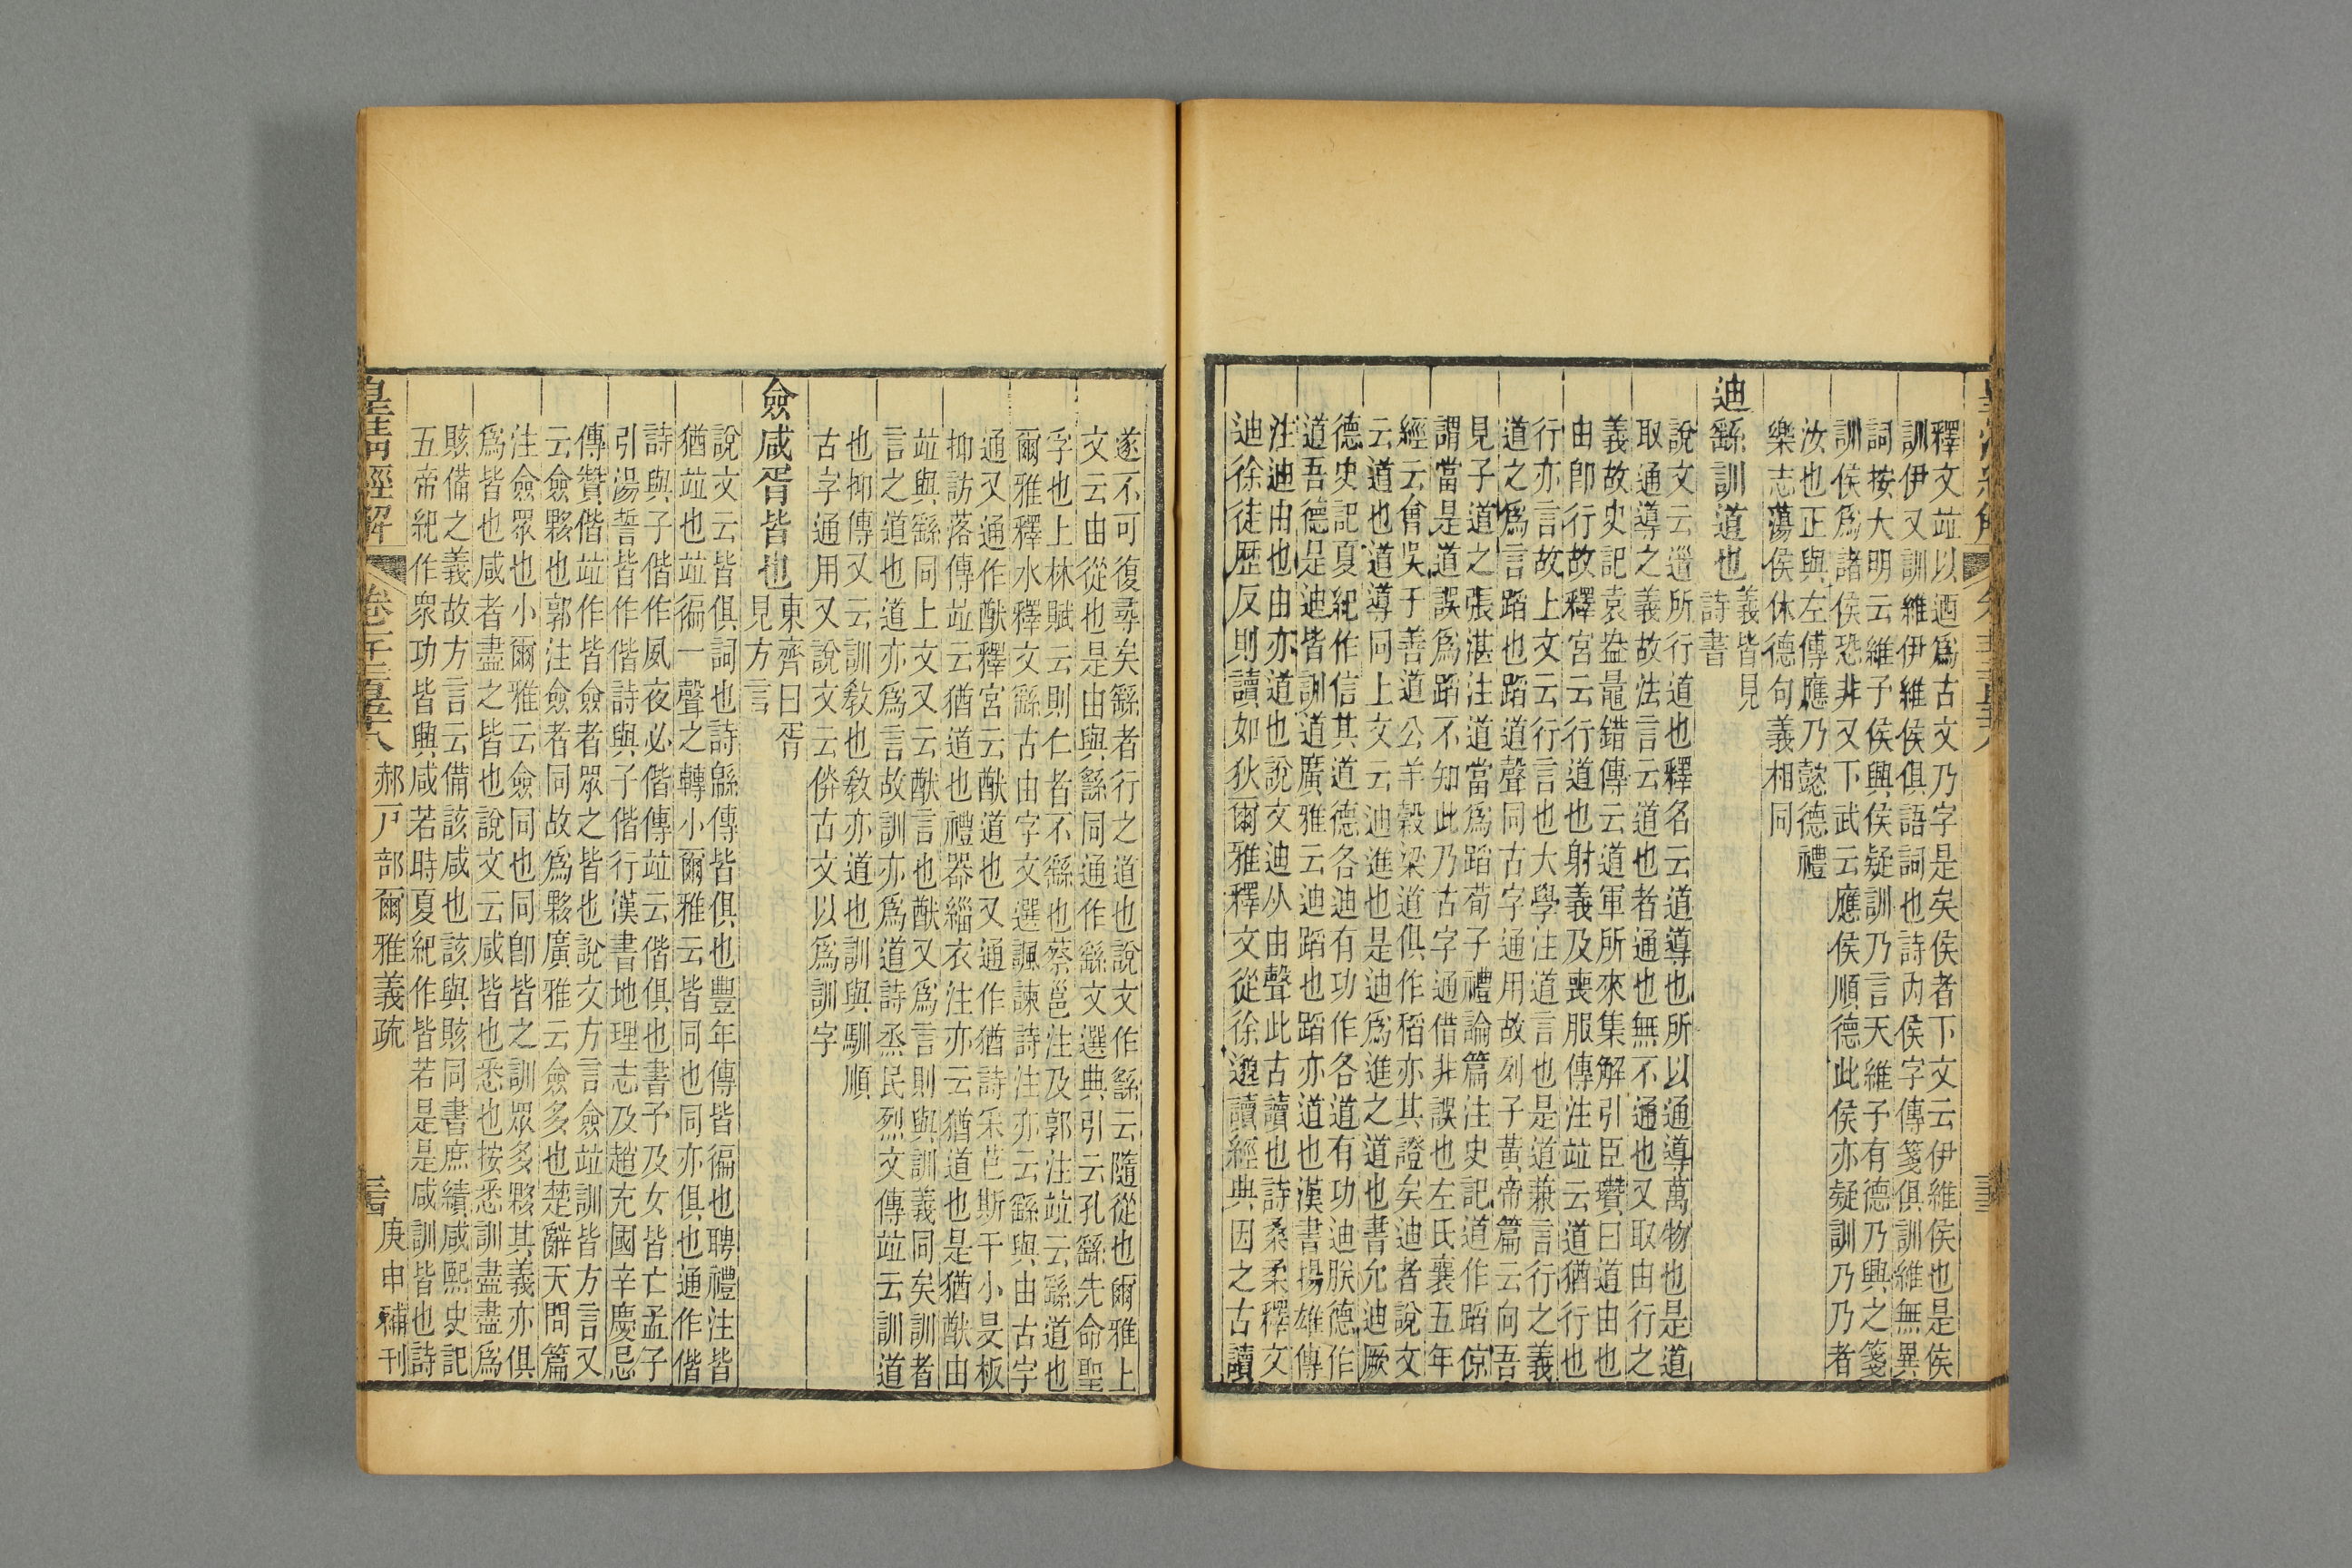 釋文竝以迺爲古文乃字是矣侯者下文云伊維侯也是侯
訓伊又訓維伊維侯俱語詞也詩內侯字傳箋俱訓維無異
詞按大明云維子侯興侯疑訓乃言天維子有德乃興之箋
訓侯爲諸侯恐非又下武云應侯順德此侯亦疑訓乃乃者
汝也正與左傳應乃懿德禮
樂志蕩侯休德句義相同
迪繇訓道也義皆見
詩書
說文云道所行道也釋名云道導也所以通導萬物也是道
取通導之義故法言云道也者通也無不通也又取由行之
義故史記袁盎鼂錯傳云道軍所來集解引臣瓚曰道由也
由卽行故釋宮云行道也射義及喪服傳注竝云道猶行也
行亦言故上文云行言也大學注道言也是道兼言行之義
道之爲言蹈也蹈道聲同古字通用故列子黃帝篇云向吾
見子道之張湛注道當爲蹈荀子禮論篇注史記道作蹈倞
謂當是道誤爲蹈不知此乃古字通借非誤也左氏襄五年
經云會吳于善道公羊穀梁道俱作稻亦其證矣迪者說文
云道也道導同上文云迪進也是迪爲進之道也書允迪厥
德史記夏紀作信其道德各迪有功作各道有功迪朕德作
道吾德是迪皆訓道廣雅云迪蹈也蹈亦道也漢書揚雄傳
注迪由也由亦道也說文迪从由聲此古讀也詩桑柔釋文
迪徐徒歷反則讀如狄爾雅釋文從徐邈讀經典因之古讀
遂不可復尋矣繇者行之道也說文作繇云隨從也爾雅上
文云由從也是由與繇同通作繇文選典引云孔繇先命聖
孚也上林賦云則仁者不繇也蔡邕注及郭注竝云繇道也
爾雅釋水釋文繇古由字文選諷諫詩注亦云繇與由古字
通又通作猷釋宮云猷道也又通作猶詩采芑斯干小旻板
抑訪落傳竝云猶道也禮器緇衣注亦云猶道也是猶猷由
竝與繇同上文又云猷言也猷又爲言則與訓義同矣訓者
言之道也道亦爲言故訓亦爲道詩烝民烈文傳竝云訓道
也抑傳又云訓敎也敎亦道也訓與馴順
古字通用又說文云㑞古文以爲訓字
僉咸胥皆也東齊曰胥
見方言
說文云皆俱詞也詩緜傳皆俱也豐年傳皆徧也聘禮注皆
猶竝也竝徧一聲之轉小爾雅云皆同也同亦俱也通作偕
詩與子偕作夙夜必偕傳竝云偕俱也書予及女皆亡孟子
引湯誓皆作偕詩與子偕行漢書地理志及趙充國辛慶忌
傳贊偕竝作皆僉者眾之皆也說文方言僉竝訓皆方言又
云僉夥也郭注僉者同故爲夥廣雅云僉多也楚辭天問篇
注僉眾也小爾雅云僉同也同卽皆之訓眾多夥其義亦俱
爲皆也咸者盡之皆也說文云咸皆也悉也按悉訓盡盡爲
賅備之義故方言云備該咸也該與賅同書庶績咸熙史記
五帝紀作衆功皆興咸若時夏紀作皆若是是咸訓皆也詩
皇清經解 卷千二百五十八 郝戶部爾雅義疏 三四 庚申補刊